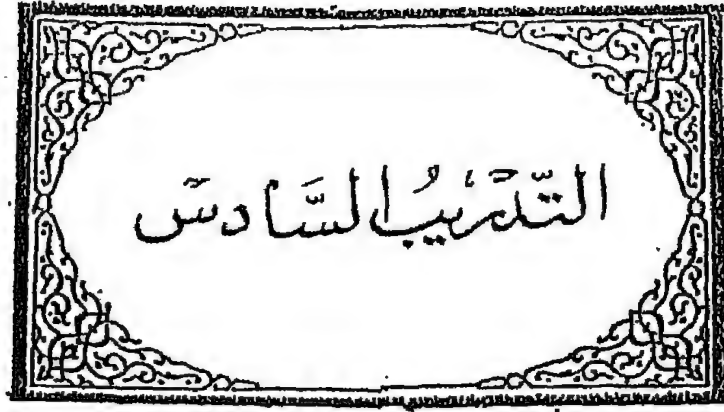 التدريب السادس